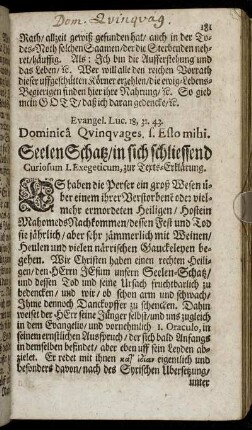 Dom. Qvinqvag.
181
Rath/ allzeit gewiß gefunden hat/ auch in der To-
des-Noth solchen Saamen/ der die Sterbenden neh-
ret/ häuffig. Als: Jch bin die Aufferstehung und
das Leben/ ꝛc. Wer will alle den reichen Vorrath
dieser uffgeschütten Körner erzehlen/ die ewig-Lebens-
Begierigen finden hier ihre Nahrung/ ꝛc. So gieb
mein GOTT/ daß ich daran gedencke/ ꝛc.
Evangel. Luc. 18, 31. 43.
Dominicâ Qvinqvages. s. Esto mihi.
Seelen Schatz/ in sich schliessend
Curiosum I. Exegeticum, zur Texts-Erklärung.
ES haben die Perser ein groß Wesen ü-
ber einem ihrer Verstorbenē oder viel-
mehr ermordeten Heiligen/ Hossein
Mahomeds Nachkommen/ dessen Fest und Tod
sie jährlich/ aber sehr jämmerlich mit Weinen/
Heulen und vielen närrischen Gauckeleyen be-
gehen. Wir Christen haben einen rechten Heili-
gen/ den HErrn JEsum unsern Seelen-Schatz/
und dessen Tod und seine Ursach fruchtbarlich zu
bedencken/ und wir/ ob schon arm und schwach/
Jhme dennoch Danckopffer zu schencken. Dahin
weiset der HErr seine Jünger selbst/ und uns zugleich
in dem Evangelio/ und vornehmlich 1. Oraculo, in
seinem ernstlichen Ausspruch/ der sich bald Anfangs
in demselben befindet/ aber eben uff sein Leyden ab-
zielet. Er redet mit ihnen κατ' ἰδίαν eigentlich und
besonders davon/ nach des Syrischen Ubersetzung/
unter